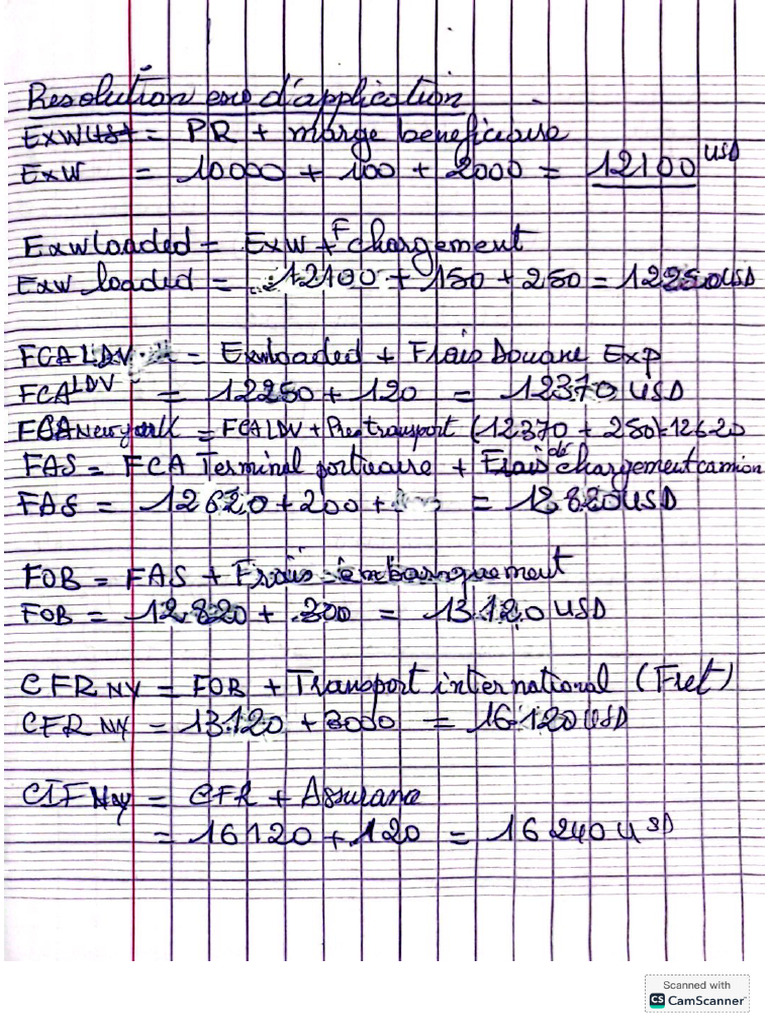 Resolution exo d'application
EXW = PR + marge beneficiaire
EXW = 10000 + 100 + 2000 = 12100 USD
Exw loaded = Exw + F chargement
Exw loaded = 12100 + 150 + 250 = 12250 USD
FCA LDV = Exwloaded + Frais Douane Exp
FCA LDV = 12250 + 120 = 12370 USD
FCA Newyork = FCA LDV + Pretransport (12370 + 250)=12620
FAS = FCA Terminal portuaire + Frais de chargement camion
FAS = 12620 + 200 + = 12820 USD
FOB = FAS + Frais embarquement
FOB = 12820 + 300 = 13120 USD
CFR NY = FOB + Transport international (Fret)
CFR NY = 13120 + 3000 = 16120 USD
CIF NY = CFR + Assurance
= 16120 + 120 = 16240 USD
Scanned with
CS CamScanner